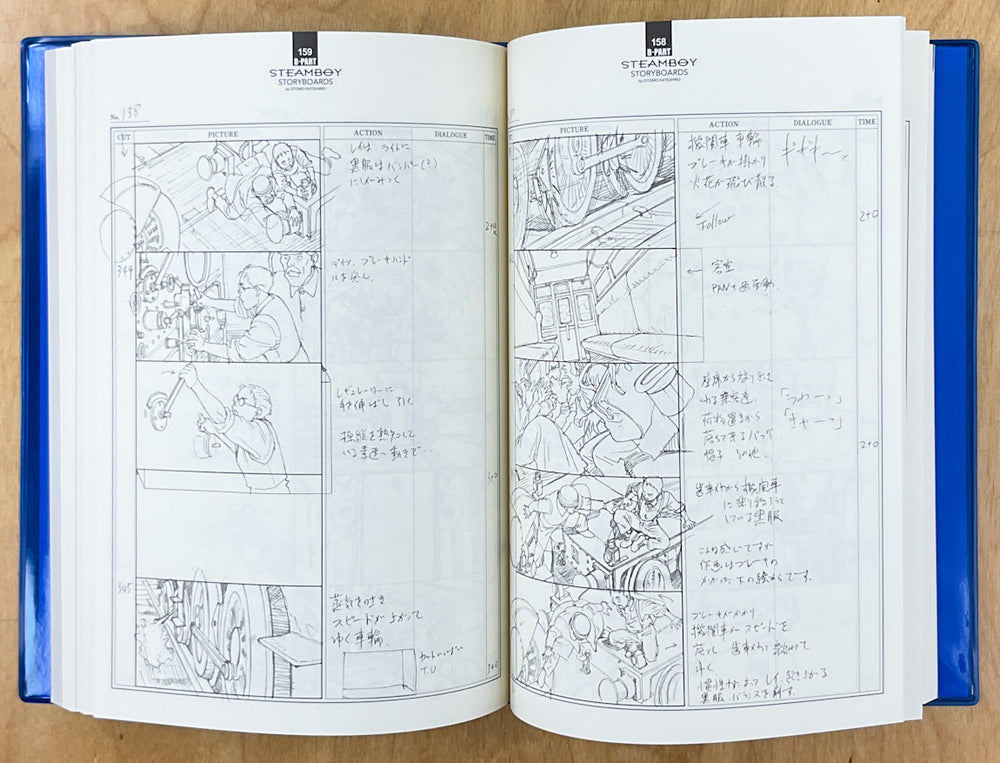 159
B-PART
STEAMBOY
STORYBOARDS
by OTOMO KATSUHIRO
No. 138
CUT
PICTURE
ACTION
DIALOGUE
TIME
レイは ライトに
黒服はバンパー(?)
にしがみつく
2+0
344
ブレーキハンド
ルを戻し、
レギュレーターに
手を伸ばし 引く
操縦を熟知して
いる素速い動きで…
3+0
345
蒸気を吐き
スピードが上がって
ゆく車輪、
T.U
3+0
158
B-PART
STEAMBOY
STORYBOARDS
by OTOMO KATSUHIRO
PICTURE
ACTION
DIALOGUE
TIME
機関車 車輪
ブレーキが掛かり
火花が飛び散る
ギギギ〜ッ
Follow
2+0
客室
座席から放り出さ
れる乗客達
荷物置きから
落ちて来るバッグ
帽子 その他
「うわーっ」
「きゃーっ」
2+0
客車から機関車
に乗り移ろうと
している黒服
こんな感じですが
作画はブレーキの
かかった下の絵からです。
ブレーキがかかり、
機関車がスピードを
落とし 客車
ゆく
レイ、起き上がる
黒服、バランスを崩す。